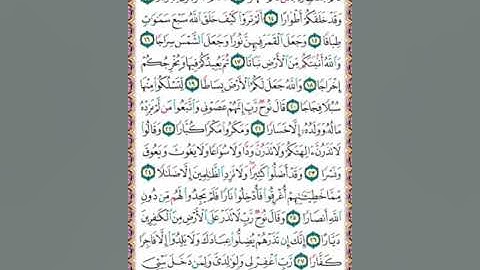 وَقَدْ خَلَقَكُمْ أَطْوَارًا ١٤ أَلَمْ تَرَوْا كَيْفَ خَلَقَ ٱللَّهُ سَبْعَ سَمَٰوَٰتٍ
طِبَاقًا ١٥ وَجَعَلَ ٱلْقَمَرَ فِيهِنَّ نُورًا وَجَعَلَ ٱلشَّمْسَ سِرَاجًا ١٦
وَٱللَّهُ أَنۢبَتَكُم مِّنَ ٱلْأَرْضِ نَبَاتًا ١٧ ثُمَّ يُعِيدُكُمْ فِيهَا وَيُخْرِجُكُمْ
إِخْرَاجًا ١٨ وَٱللَّهُ جَعَلَ لَكُمُ ٱلْأَرْضَ بِسَاطًا ١٩ لِّتَسْلُكُوا۟ مِنْهَا
سُبُلًا فِجَاجًا ٢٠ قَالَ نُوحٌ رَّبِّ إِنَّهُمْ عَصَوْنِى وَٱتَّبَعُوا۟ مَن لَّمْ يَزِدْهُ
مَالُهُۥ وَوَلَدُهُۥٓ إِلَّا خَسَارًا ٢١ وَمَكَرُوا۟ مَكْرًا كُبَّارًا ٢٢ وَقَالُوا۟
لَا تَذَرُنَّ ءَالِهَتَكُمْ وَلَا تَذَرُنَّ وَدًّا وَلَا سُوَاعًا وَلَا يَغُوثَ وَيَعُوقَ
وَنَسْرًا ٢٣ وَقَدْ أَضَلُّوا۟ كَثِيرًا وَلَا تَزِدِ ٱلظَّٰلِمِينَ إِلَّا ضَلَٰلًا ٢٤
مِّمَّا خَطِيٓـَٰٔتِهِمْ أُغْرِقُوا۟ فَأُدْخِلُوا۟ نَارًا فَلَمْ يَجِدُوا۟ لَهُم مِّن دُونِ
ٱللَّهِ أَنصَارًا ٢٥ وَقَالَ نُوحٌ رَّبِّ لَا تَذَرْ عَلَى ٱلْأَرْضِ مِنَ ٱلْكَٰفِرِينَ
دَيَّارًا ٢٦ إِنَّكَ إِن تَذَرْهُمْ يُضِلُّوا۟ عِبَادَكَ وَلَا يَلِدُوٓا۟ إِلَّا فَاجِرًا
كَفَّارًا ٢٧ رَّبِّ ٱغْفِرْ لِى وَلِوَٰلِدَىَّ وَلِمَن دَخَلَ بَيْتِىَ